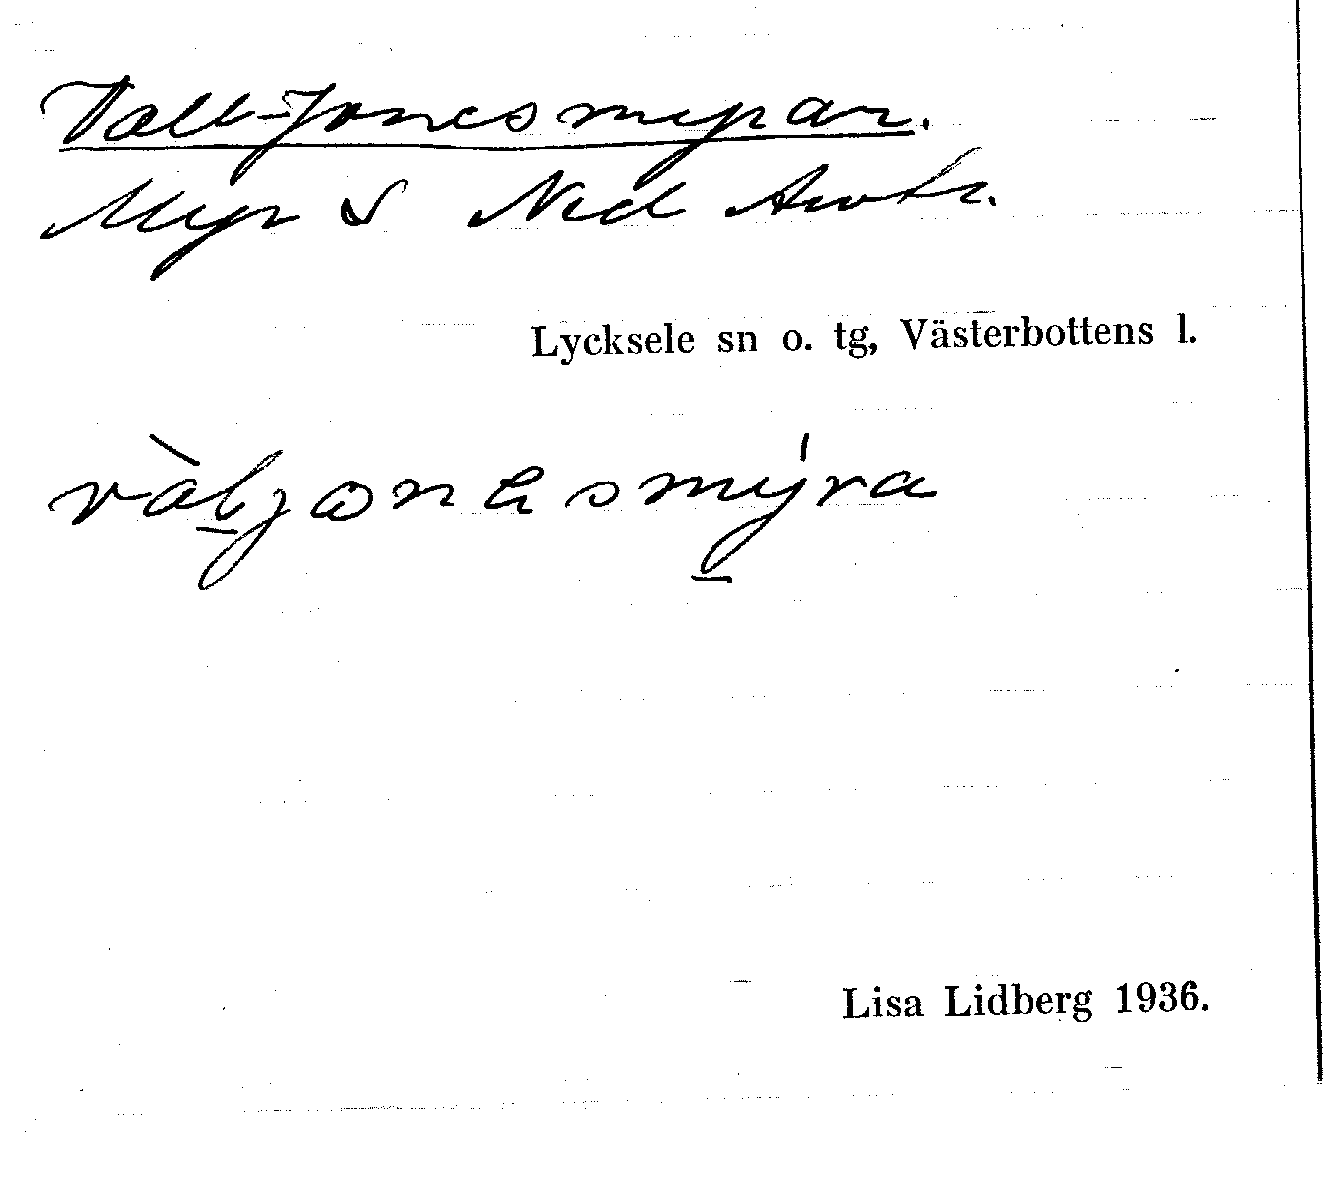 Vall-Jonesmyran.
Myr S Ned
Lycksele sn o. tg, Västerbottens l.
Lisa Lidberg 1936.